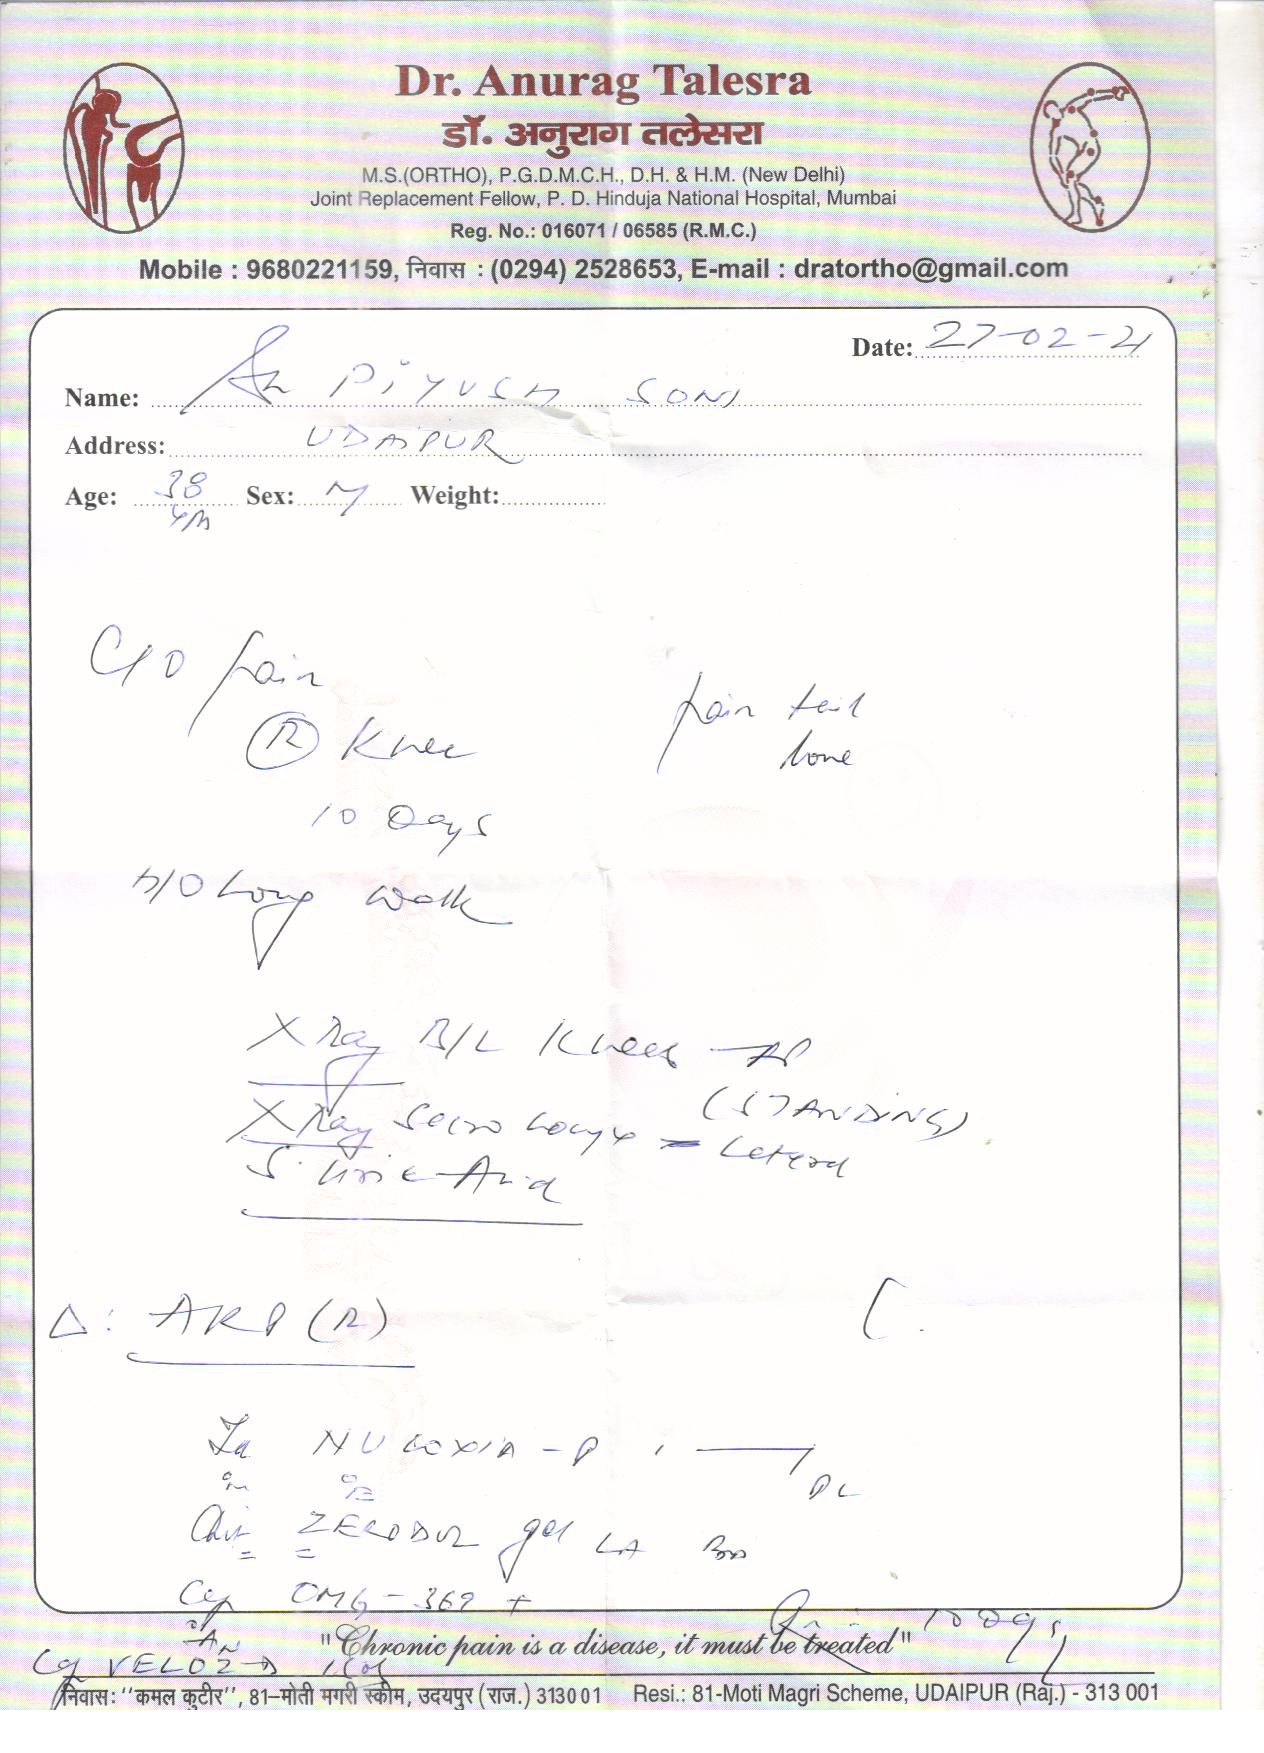 Dr. Anurag Talesra
डॉ. अनुराग तलेसरा
M.S.(ORTHO), P.G.D.M.C.H., D.H. & H.M. (New Delhi)
Joint Replacement Fellow, P. D. Hinduja National Hospital, Mumbai
Reg. No.: 016071 / 06585 (R.M.C.)
Mobile : 9680221159, निवास : (0294) 2528653, E-mail : dratortho@gmail.com
Date: 27-02-21
Name: PIYUSH SONI
Address: UDAIPUR
Age: 38 Sex: M Weight:
C/O pain
(R) Knee
10 Days
pain tail
bone
H/O Long walk
X Ray B/L Knees - AP
(STANDING)
X Ray Sacro Coccyx = Lateral
S. Uric Acid
Δ: AKP (R)
NUCOXIA - P
ZERODOL gel LA
Cap OMG - 369 +
Cap VELOZ-D
"Chronic pain is a disease, it must be treated"
निवास: "कमल कुटीर", 81-मोती मगरी स्कीम, उदयपुर (राज.) 313001 Resi.: 81-Moti Magri Scheme, UDAIPUR (Raj.) - 313 001